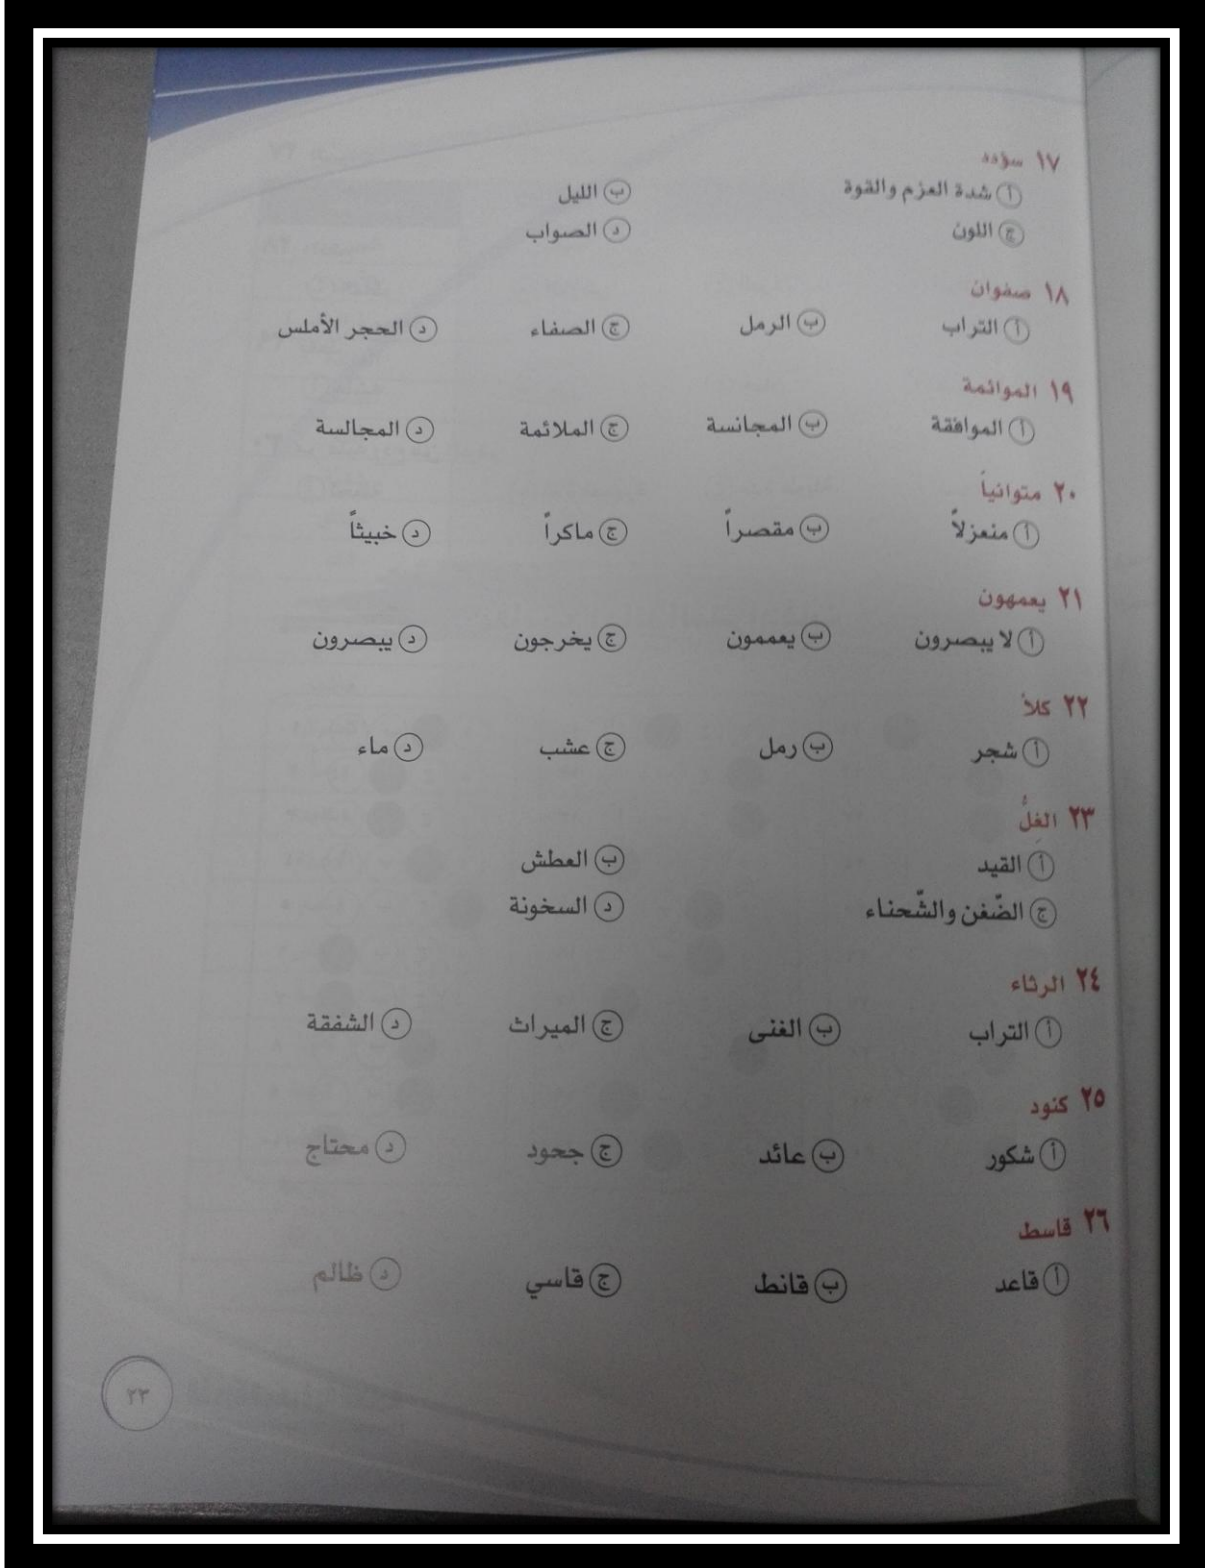 ١٧ سؤدد
أ شدة العزم والقوة ب الليل
ج اللون د الصواب
١٨ صفوان
أ التراب ب الرمل ج الصفاء د الحجر الأملس
١٩ الموائمة
أ الموافقة ب المجانسة ج الملائمة د المجالسة
٢٠ متوانياً
أ منعزلاً ب مقصراً ج ماكراً د خبيثاً
٢١ يعمهون
أ لا يبصرون ب يعممون ج يخرجون د يبصرون
٢٢ كلأ
أ شجر ب رمل ج عشب د ماء
٢٣ الغِلُّ
أ القيد ب العطش
ج الضّغن والشّحناء د السخونة
٢٤ الرثاء
أ التراب ب الغنى ج الميراث د الشفقة
٢٥ كنود
أ شكور ب عائد ج جحود د محتاج
٢٦ قاسط
أ قاعد ب قانط ج قاسي د ظالم
٢٣